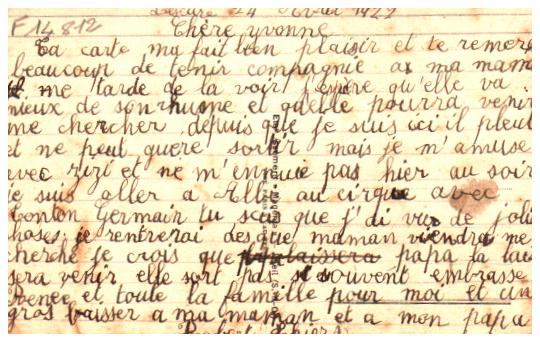 Lescure 24 Avril 1922
F 14 812
Chère yvonne
Ta carte ma fait bien plaisir et te remerc
beaucoup de tenir compagnie a ma mama
me tarde de la voir j'espère qu'elle va
mieux de son rhume et quelle pourra venir
me chercher depuis que je suis ici il pleut
et ne peut guere sortir mais je m'amuse
avec zizi et ne m'ennuie pas hier au soir
je suis aller a Albi au cirque avec
Tonton Germain tu sais que j'ai vu de joli
choses je rentrerai des que maman viendra me
cherché je crois que papa la lai
sera venir elle sort pas si souvent embrasse
Renée et toute la famille pour moi et un
gros baiser a ma maman et a mon papa